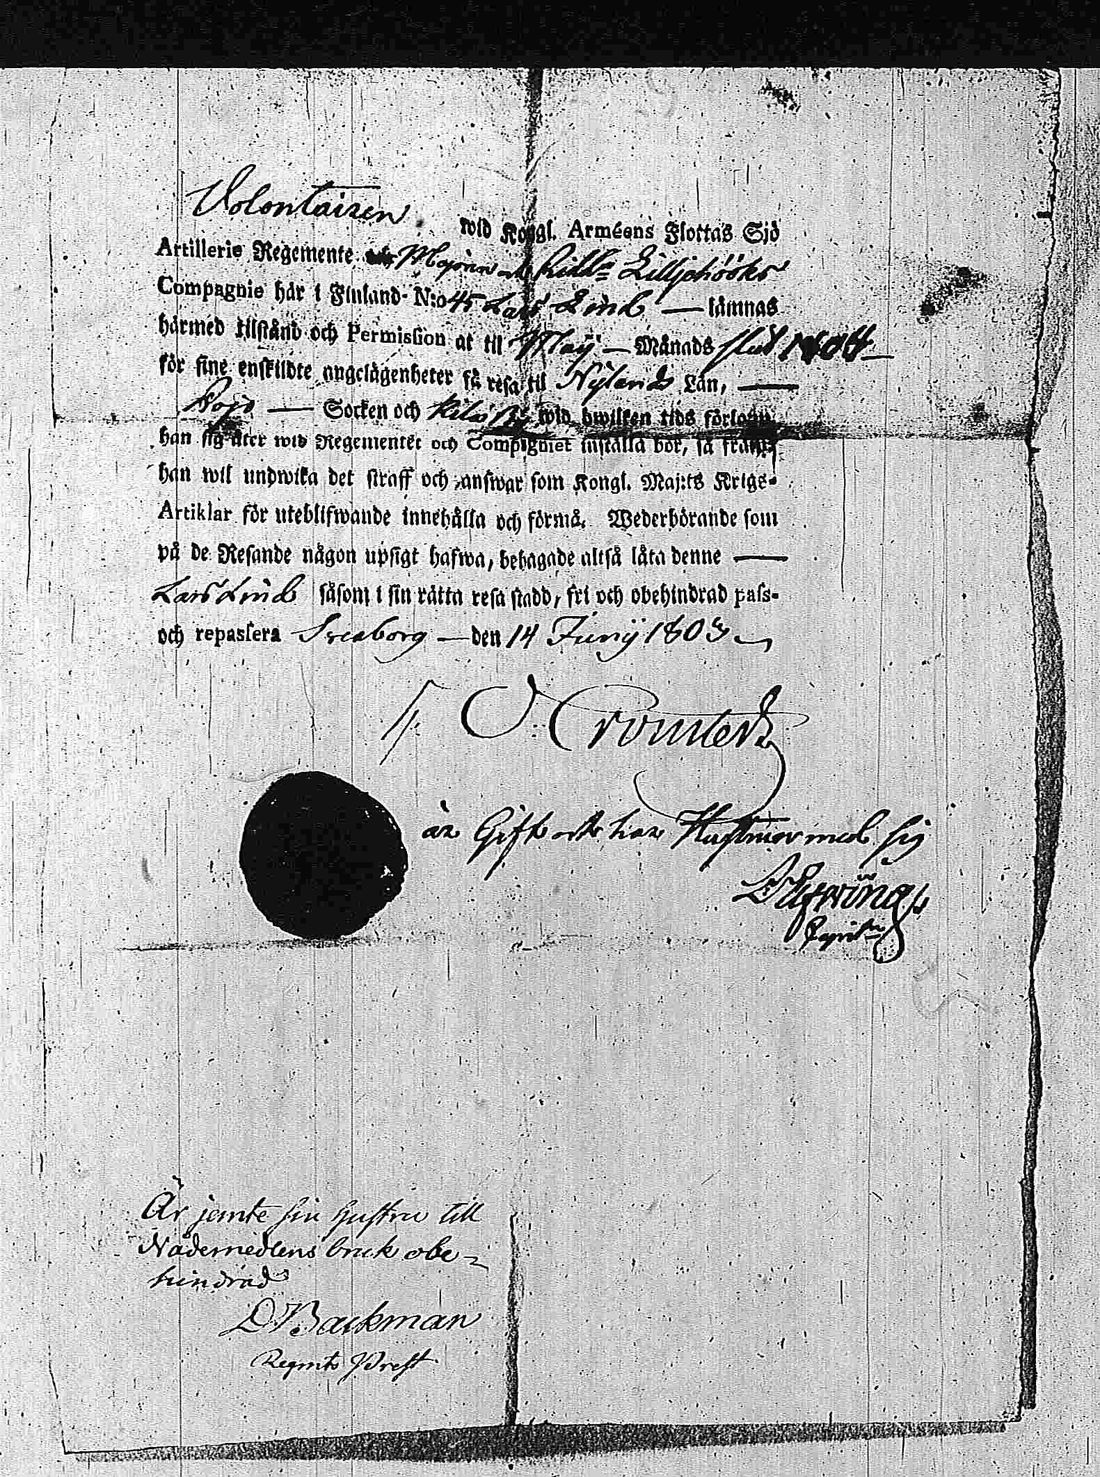 Volontairen wid Kongl. Arméens Flottas Sjö
Artillerie Regemente Majoren och Ridd:n Lilljehööks
Compagnie här i Finland N:o 45 Lars Lind — lämnas
härmed tilstånd och Permission at til Maij — Månads slut 1804 —
för sine enskildte angelägenheter få resa til Nylands Län, —
Pojo — Socken och Kila By wid hwilken tids förlopp
han sig åter wid Regementet och Compagniet inställa bör, så framt
han wil undwika det straff och answar som Kongl. Maj:ts Krigs-
Artiklar för uteblifwande innehålla och förmå. Wederbörande som
på de Resande någon upsigt hafwa, behagade altså låta denne —
Lars Lind såsom i sin rätta resa stadd, fri och obehindrad pass-
och repassera Sveaborg — den 14 Junij 1803
O: Cronstedt
är Gift och har Hustrun med sig
Capit:n
Är jemte sin hustru till
Nådemedlens bruk obe-
hindrad
D Backman
Regmts Prest